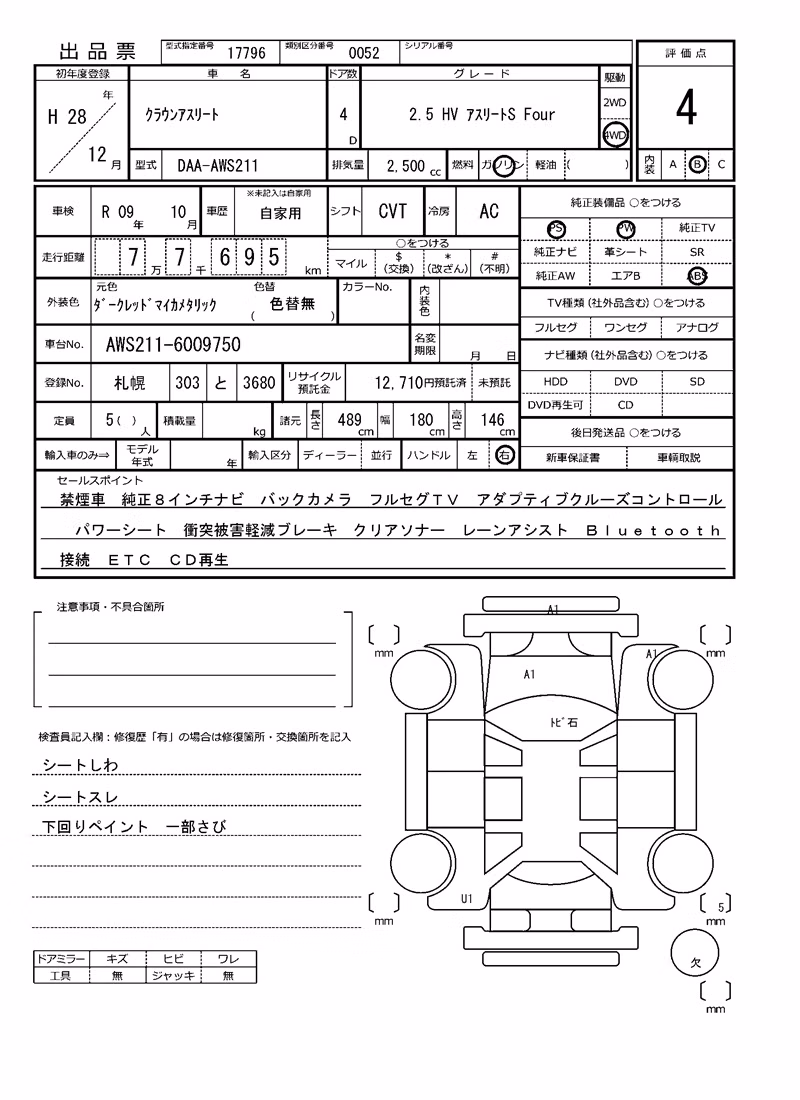 出品票 型式指定番号 17796 類別区分番号 0052 シリアル番号
評価点
初年度登録 車名 ドア数 グレード 駆動
H 28 年 12 月 クラウンアスリート 4 D 2.5 HV アスリートS Four 2WD 4WD
4
型式 DAA-AWS211 排気量 2,500 cc 燃料 ガソリン 軽油 ( ) 内装 A B C
車検 R 09 年 10 月 車歴 ※未記入は自家用 自家用 シフト CVT 冷房 AC
純正装備品 ○をつける
PS PW 純正TV
走行距離 7 万 7 千 6 9 5 km ○をつける
マイル $ (交換) * (改ざん) # (不明)
純正ナビ 革シート SR
純正AW エアB ABS
外装色 元色 ダークレッドマイカメタリック 色替 ( 色替無 ) カラーNo. 内装色
TV種類 (社外品含む) ○をつける
フルセグ ワンセグ アナログ
車台No. AWS211-6009750 名変期限 月 日
ナビ種類 (社外品含む) ○をつける
登録No. 札幌 303 と 3680 リサイクル預託金 12,710円預託済 未預託
HDD DVD SD
DVD再生可 CD
定員 5( ) 人 積載量 kg 諸元 長さ 489 cm 幅 180 cm 高さ 146 cm
後日発送品 ○をつける
輸入車のみ⇒ モデル年式 年 輸入区分 ディーラー 並行 ハンドル 左 右
新車保証書 車輌取説
セールスポイント
禁煙車 純正8インチナビ バックカメラ フルセグTV アダプティブクルーズコントロール
パワーシート 衝突被害軽減ブレーキ クリアソナー レーンアシスト Bluetooth
接続 ETC CD再生
注意事項・不具合箇所
A1
mm
mm
A1
A1
トビ石
検査員記入欄：修復歴「有」の場合は修復箇所・交換箇所を記入
シートしわ
シートスレ
下回りペイント 一部さび
U1
mm
5
mm
欠
mm
ドアミラー キズ ヒビ ワレ
工具 無 ジャッキ 無